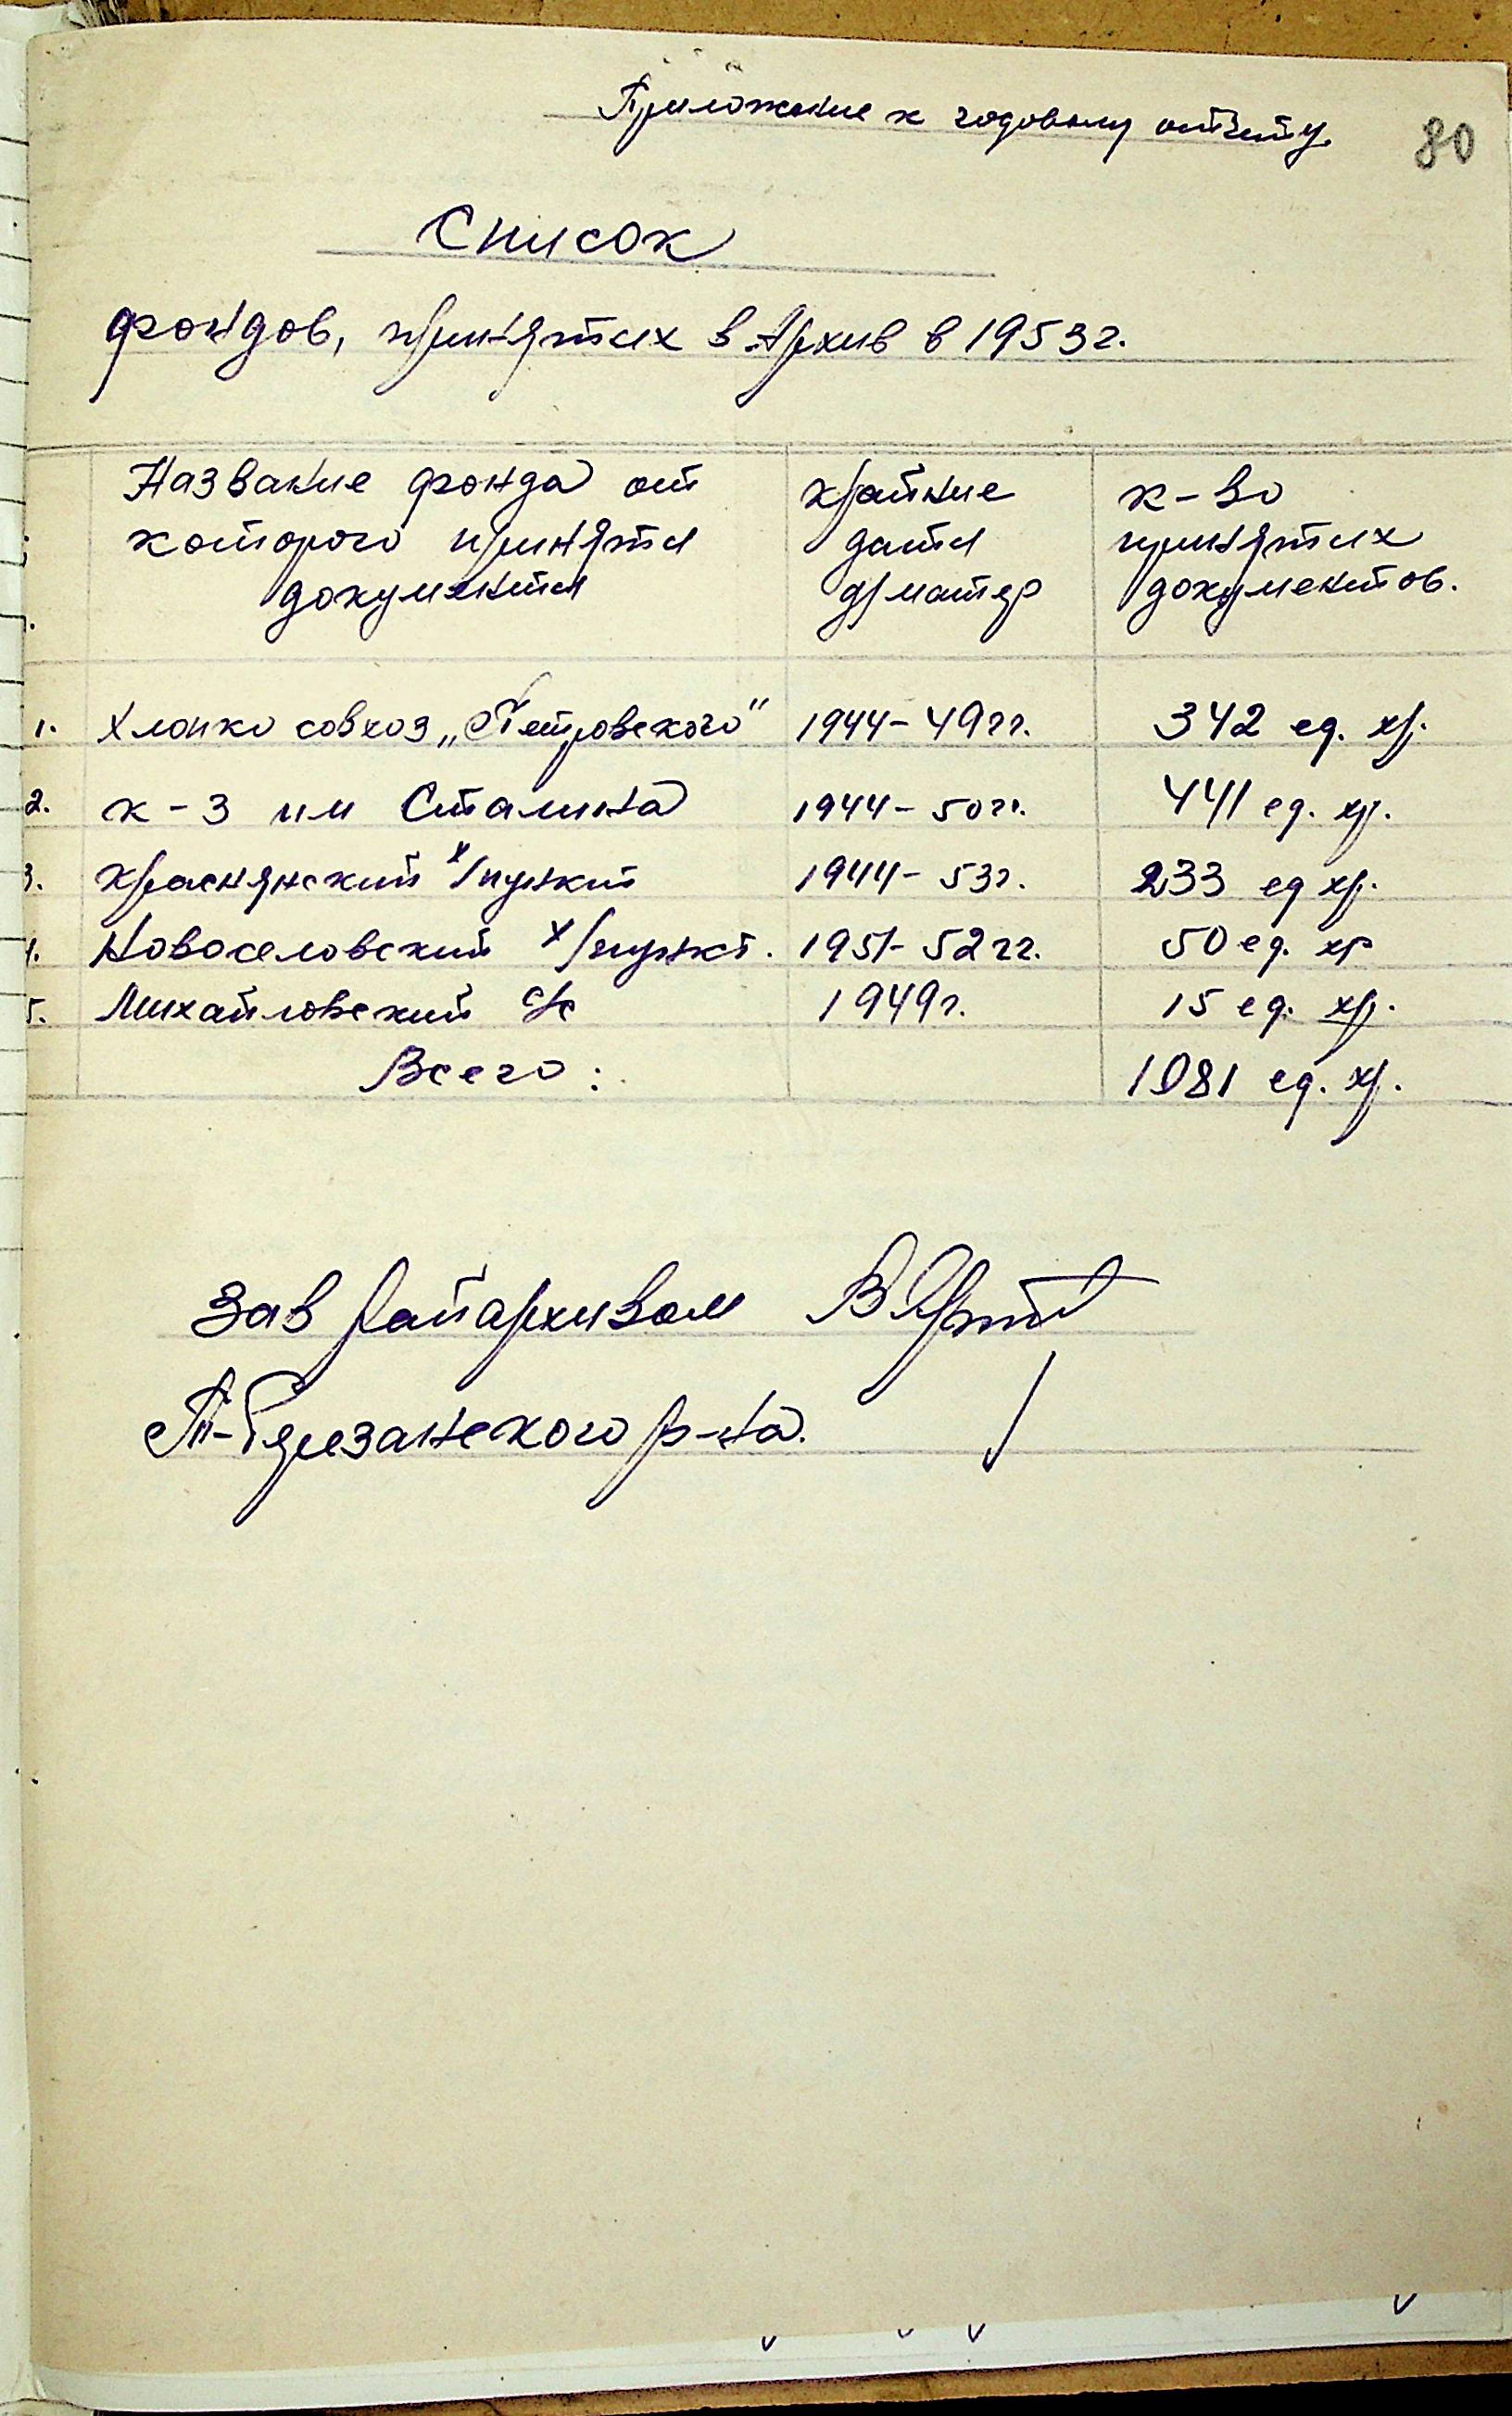 Приложение к годовому отчету.
80
Список
фондов, принятых в Архив в 1953г.
Название фонда от крайние к-во
которого приняты даты принятых
документы д/матер документов.
1. Хлопко совхоз „Петровского" 1944-49гг. 342 ед. хр.
2. к-з им Сталина 1944-50гг. 441 ед. хр.
3. Краснянский х/пункт 1944-53г. 233 ед хр.
4. Новоселовский х/пункт. 1951-52гг. 50 ед. хр
5. Михайловский с/с 1949г. 15 ед. хр.
Всего: 1081 ед. хр.
Зав райархивом
Т-Березанского р-на.